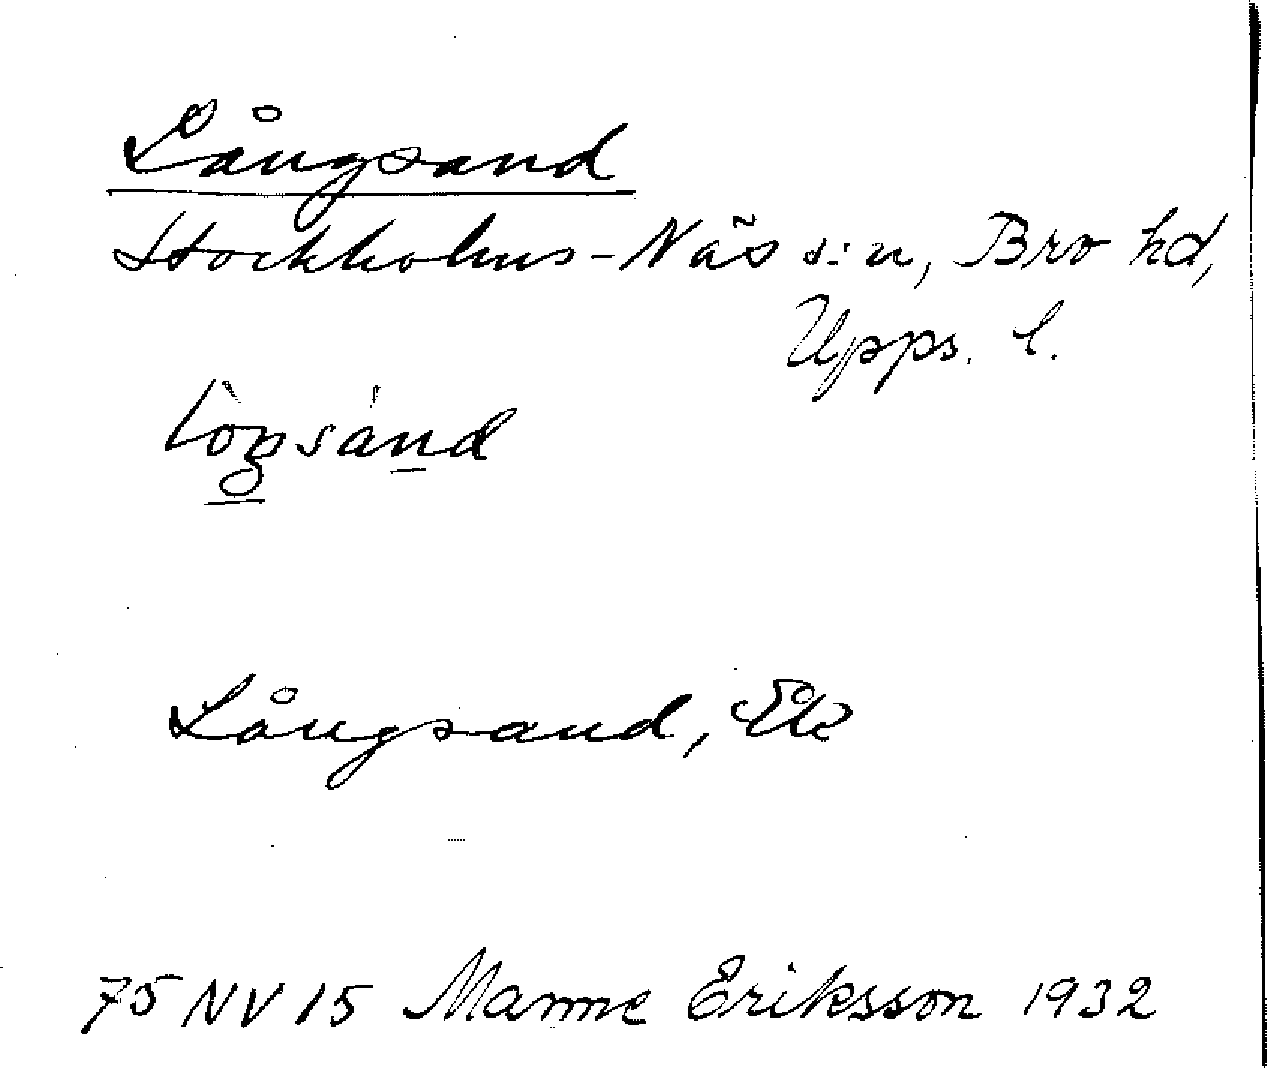 Långsand
Stockholms-Näs s:n, Bro hd,
Upps. l.
Långsand, Ek
75 NV 15 Manne Eriksson 1932